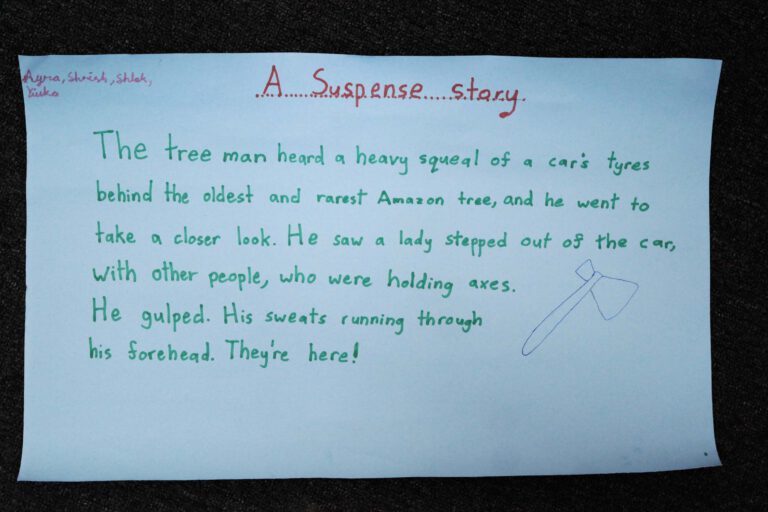 Ayra, Shrish, Shlok,
A Suspense story
The tree man heard a heavy squeal of a car's tyres
behind the oldest and rarest Amazon tree, and he went to
take a closer look. He saw a lady stepped out of the car,
with other people, who were holding axes.
He gulped. His sweats running through
his forehead. They're here!